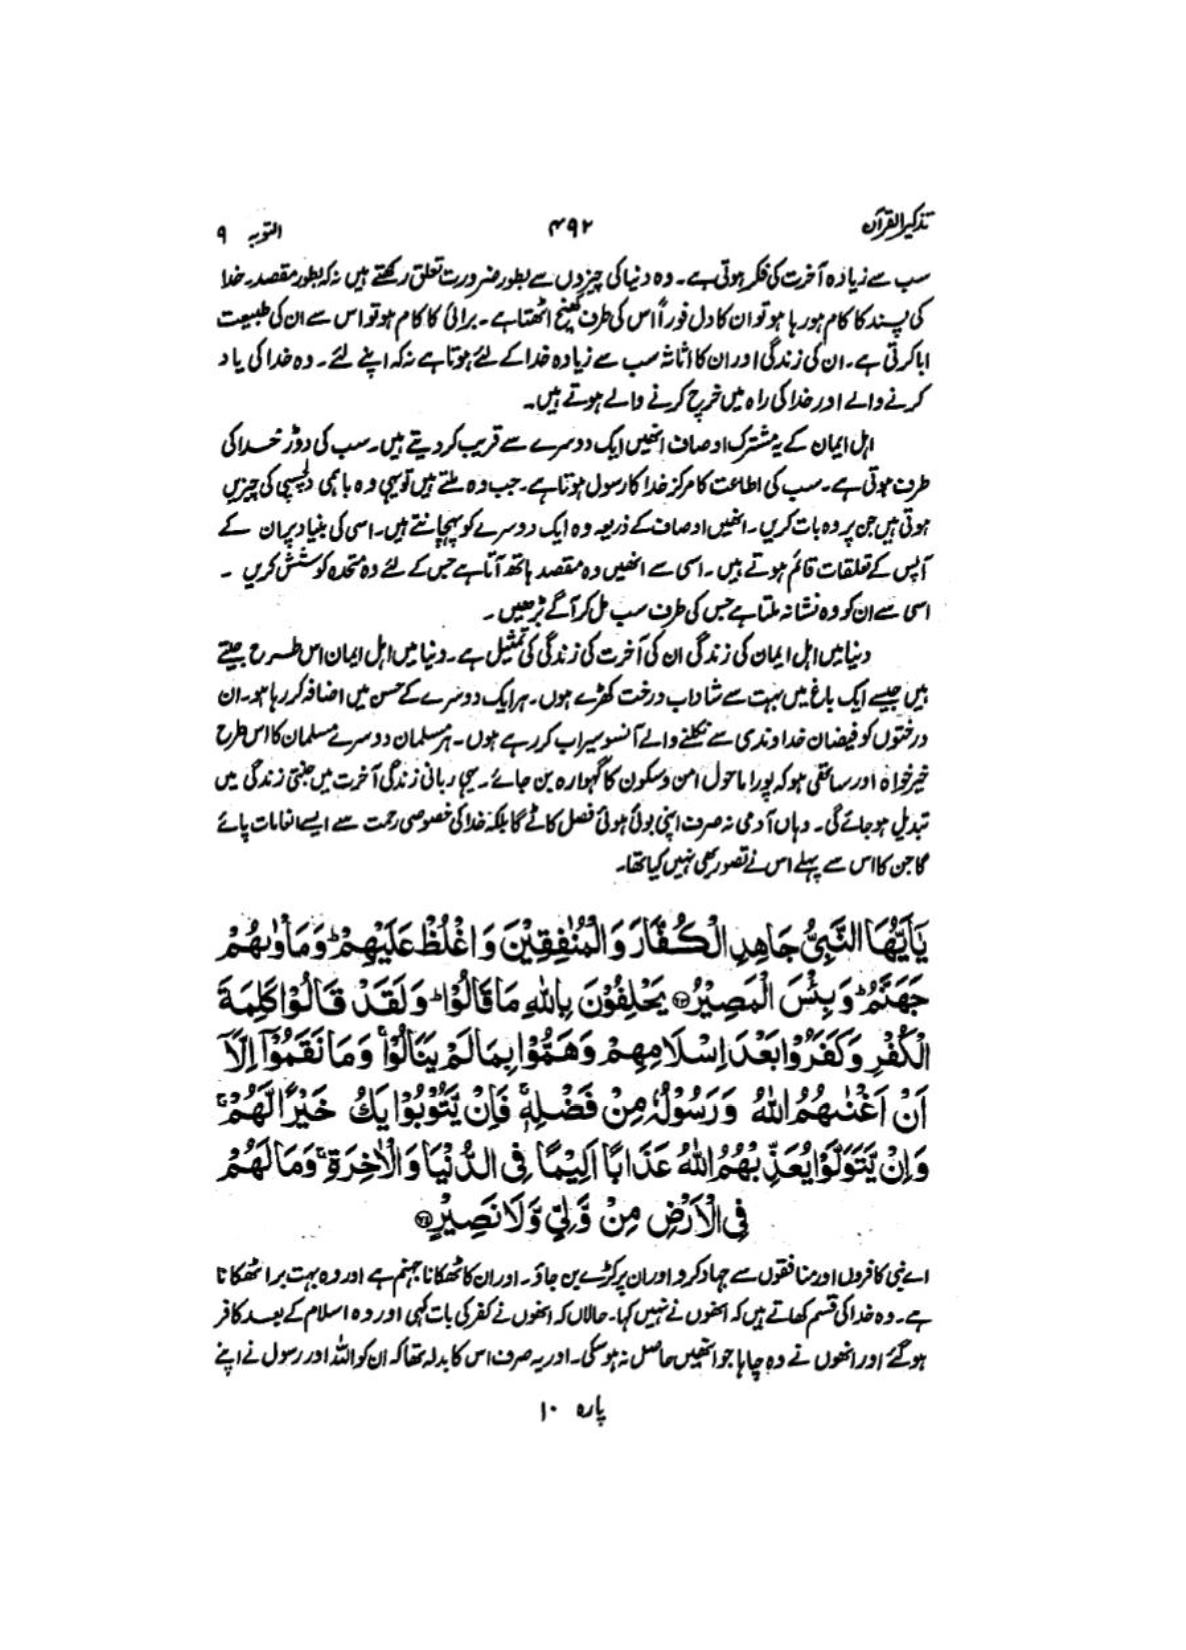 تذکیر القرآن ۴۹۲ التوبہ ۹
سب سے زیادہ آخرت کی فکر ہوتی ہے۔ وہ دنیا کی چیزوں سے بطور ضرورت تعلق رکھتے ہیں نہ کہ بطور مقصد۔ خدا
کی پسند کا کام ہو رہا ہو تو ان کا دل فوراً اس کی طرف کھینچ اٹھتا ہے۔ برائی کا کام ہو تو اس سے ان کی طبیعت
ابا کرتی ہے۔ ان کی زندگی اور ان کا اثاثہ سب سے زیادہ خدا کے لئے ہوتا ہے نہ کہ اپنے لئے۔ وہ خدا کی یاد
کرنے والے اور خدا کی راہ میں خرچ کرنے والے ہوتے ہیں۔
اہل ایمان کے یہ مشترک اوصاف انھیں ایک دوسرے سے قریب کر دیتے ہیں۔ سب کی دوڑ خدا کی
طرف ہوتی ہے۔ سب کی اطاعت کا مرکز خدا کا رسول ہوتا ہے۔ جب وہ ملتے ہیں تو یہی وہ باہمی دلچسپی کی چیزیں
ہوتی ہیں جن پر وہ بات کریں۔ انھیں اوصاف کے ذریعہ وہ ایک دوسرے کو پہچانتے ہیں۔ اسی کی بنیاد پر ان کے
آپس کے تعلقات قائم ہوتے ہیں۔ اسی سے انھیں وہ مقصد ہاتھ آتا ہے جس کے لئے وہ متحدہ کوشش کریں۔
اسی سے ان کو وہ نشانہ ملتا ہے جس کی طرف سب مل کر آگے بڑھیں۔
دنیا میں اہل ایمان کی زندگی ان کی آخرت کی زندگی کی تمثیل ہے۔ دنیا میں اہل ایمان اس طرح جیتے
ہیں جیسے ایک باغ میں بہت سے شاداب درخت کھڑے ہوں۔ ہر ایک دوسرے کے حسن میں اضافہ کر رہا ہو۔ ان
درختوں کو فیضان خداوندی سے نکلنے والے آنسو سیراب کر رہے ہوں۔ ہر مسلمان دوسرے مسلمان کا اس طرح
خیر خواہ اور ساتھی ہو کہ پورا ماحول امن و سکون کا گہوارہ بن جائے۔ یہی ربانی زندگی آخرت میں جنتی زندگی میں
تبدیل ہو جائے گی۔ وہاں آدمی نہ صرف اپنی بوئی ہوئی فصل کاٹے گا بلکہ خدا کی خصوصی رحمت سے ایسے انعامات پائے
گا جن کا اس سے پہلے اس نے تصور بھی نہیں کیا تھا۔
يٰۤاَيُّهَا النَّبِىُّ جَاهِدِ الْكُفَّارَ وَالْمُنٰفِقِيْنَ وَاغْلُظْ عَلَيْهِمْ ؕ وَمَاْوٰىهُمْ
جَهَنَّمُ ؕ وَبِئْسَ الْمَصِيْرُ ﴿۷۳﴾ يَحْلِفُوْنَ بِاللّٰهِ مَا قَالُوْا ؕ وَلَقَدْ قَالُوْا كَلِمَةَ
الْكُفْرِ وَكَفَرُوْا بَعْدَ اِسْلَامِهِمْ وَهَمُّوْا بِمَا لَمْ يَنَالُوْا ۚ وَمَا نَقَمُوْۤا اِلَّاۤ
اَنْ اَغْنٰىهُمُ اللّٰهُ وَرَسُوْلُهٗ مِنْ فَضْلِهٖ ۚ فَاِنْ يَّتُوْبُوْا يَكُ خَيْرًا لَّهُمْ ۚ
وَاِنْ يَّتَوَلَّوْا يُعَذِّبْهُمُ اللّٰهُ عَذَابًا اَلِيْمًا فِى الدُّنْيَا وَالْاٰخِرَةِ ۚ وَمَا لَهُمْ
فِى الْاَرْضِ مِنْ وَّلِيٍّ وَّلَا نَصِيْرٍ ﴿۷۴﴾
اے نبی کافروں اور منافقوں سے جہاد کرو اور ان پر کڑے بن جاؤ۔ اور ان کا ٹھکانا جہنم ہے اور وہ بہت برا ٹھکانا
ہے۔ وہ خدا کی قسم کھاتے ہیں کہ انھوں نے نہیں کہا۔ حالاں کہ انھوں نے کفر کی بات کہی اور وہ اسلام کے بعد کافر
ہو گئے اور انھوں نے وہ چاہا جو انھیں حاصل نہ ہو سکی۔ اور یہ صرف اس کا بدلہ تھا کہ ان کو اللہ اور رسول نے اپنے
پارہ ۱۰